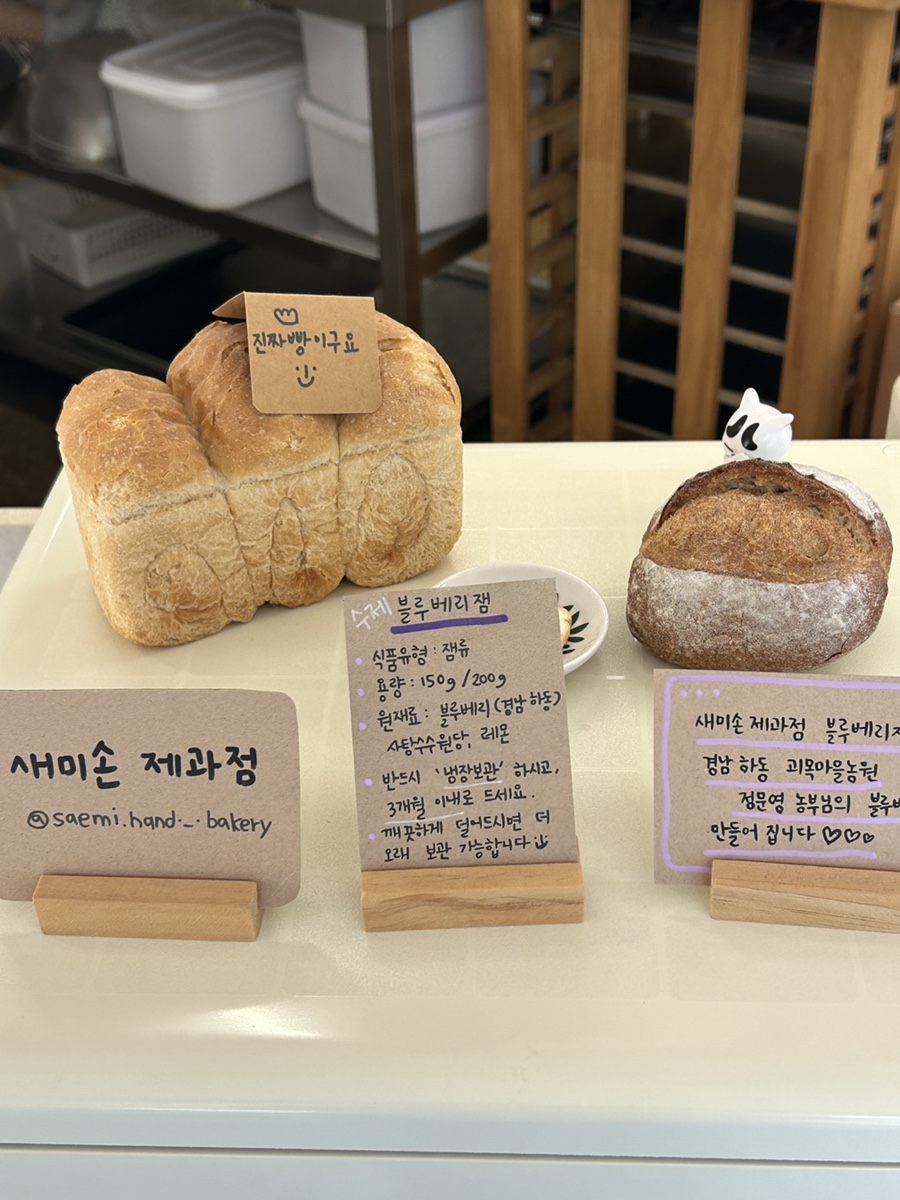 진짜빵이구요
새미손 제과점
@saemi.hand._.bakery
수제 블루베리잼
• 식품유형 : 잼류
• 용량 : 150g / 200g
• 원재료 : 블루베리(경남 하동)
사탕수수원당, 레몬
• 반드시 '냉장보관' 하시고,
3개월 이내로 드세요.
• 깨끗하게 덜어드시면 더
오래 보관 가능합니다
새미손 제과점 블루베리
경남 하동 괴목마을농원
정문영 농부님의
만들어 집니다 ♡♡♡